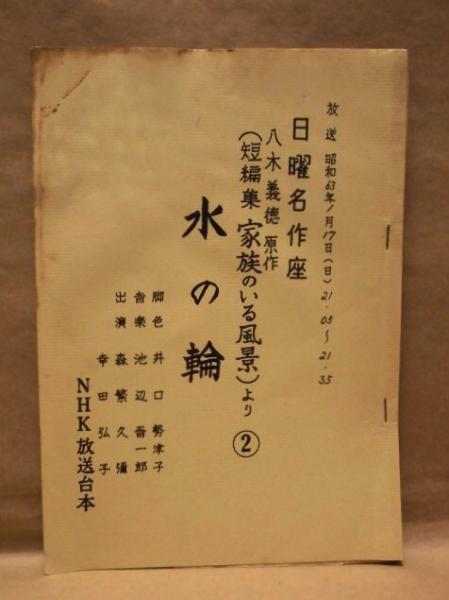 放送 昭和63年1月17日(日)21.05〜21.35
日曜名作座
八木義徳 原作
(短編集 家族のいる風景)より ②
水の輪
脚色 井口勢津子
音楽 池辺晋一郎
出演 森繁久彌
幸田弘子
NHK放送台本